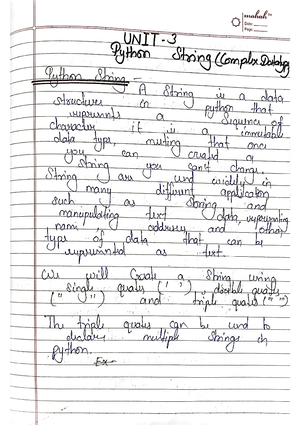 mahak
Date:
Page:
UNIT-3
Python String (Complex Datatype
Python String -
A String is a data
structures in python that
represents a Sequence of
character it is a immutable
data type, meaning that once
you can created a
string you can't change.
String are used widely in
many different application
such as Storing and
manupulating text data, representing
name, address, and other
type of data that can be
represented as text.
We will Create a String using
single quotes (' '), double quotes
(" ") and triple quotes (""" """)
The triple quotes can be used to
declare multiple Strings in
python.
Ex-